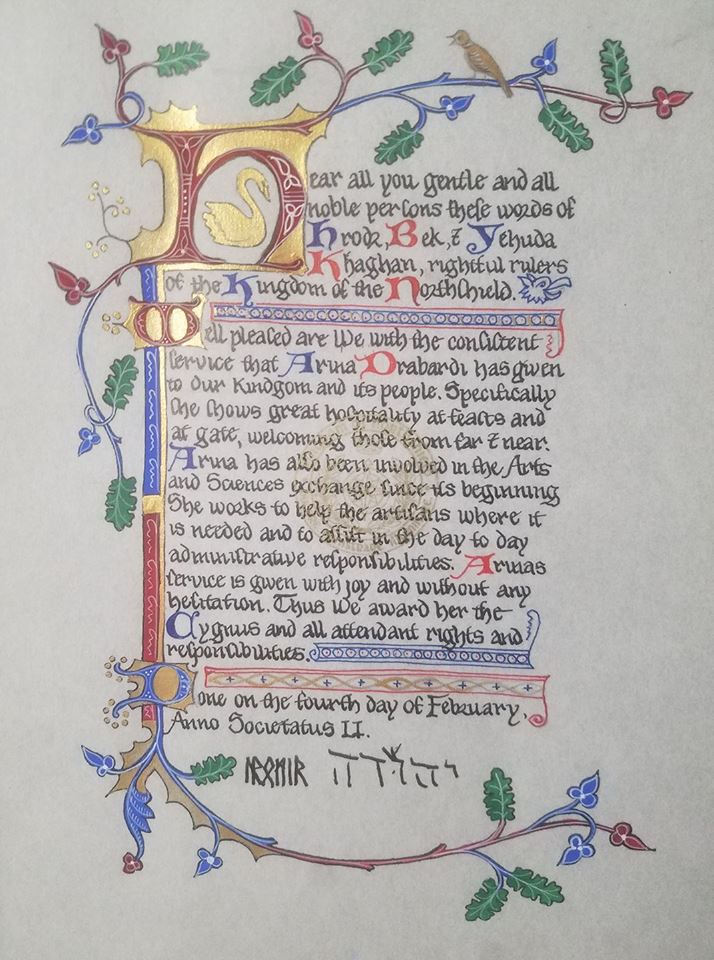 Hear all you gentle and all
noble perſons theſe words of
Hrodr, Bek, & Yehuda
Khaghan, rightful rulers
of the Kingdom of the Northshield.
Well pleaſed are We with the conſiſtent
ſervice that Arina Drabardi has given
to Our Kindgom and its people. Specifically
ſhe ſhows great hoſpitality at feaſts and
at gate, welcoming thoſe from far & near.
Arina has alſo been involved in the Arts
and Sciences exchange ſince its beginning
She works to help the artiſans where it
is needed and to aſſiſt in the day to day
adminiſtrative reſponſibilities. Arinas
ſervice is given with joy and without any
heſitation. Thus We award her the
Cygnus and all attendant rights and
reſponſibilities.
Done on the fourth day of February,
Anno Societatus LI.
יהודה